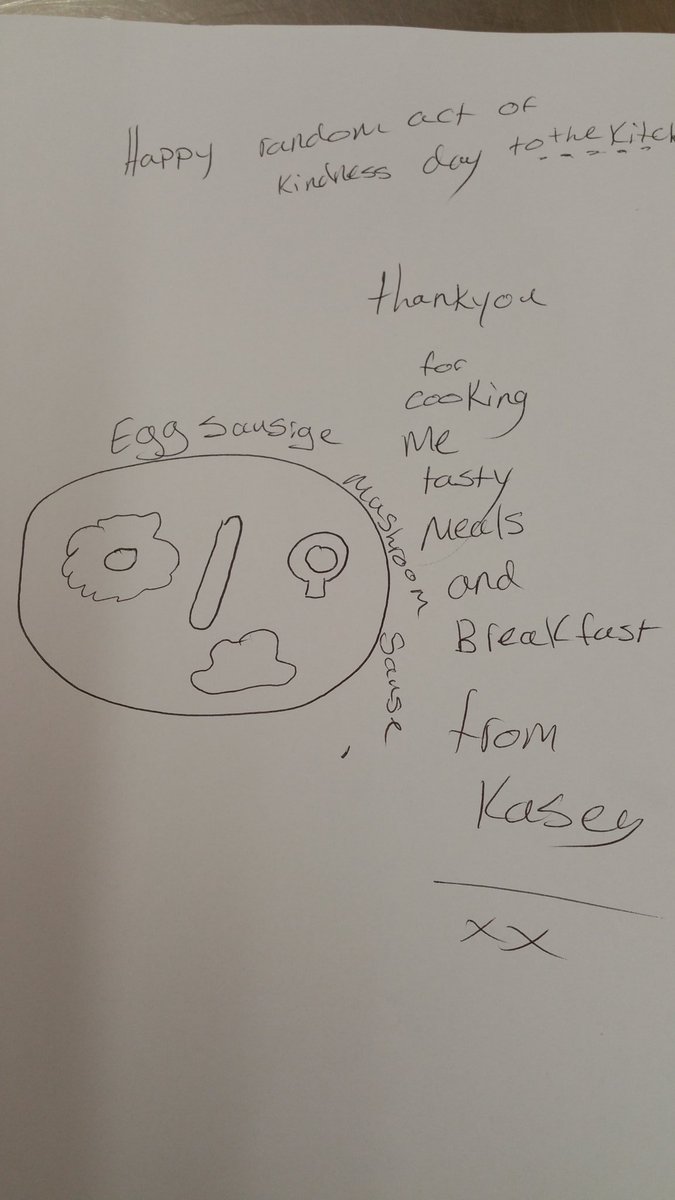 Happy random act of
kindness day to the Kitch
thankyou
for
cooking
me
tasty
meals
and
Breakfast
from
Kasey
xx
Egg Sausige
Mushroom
Sause